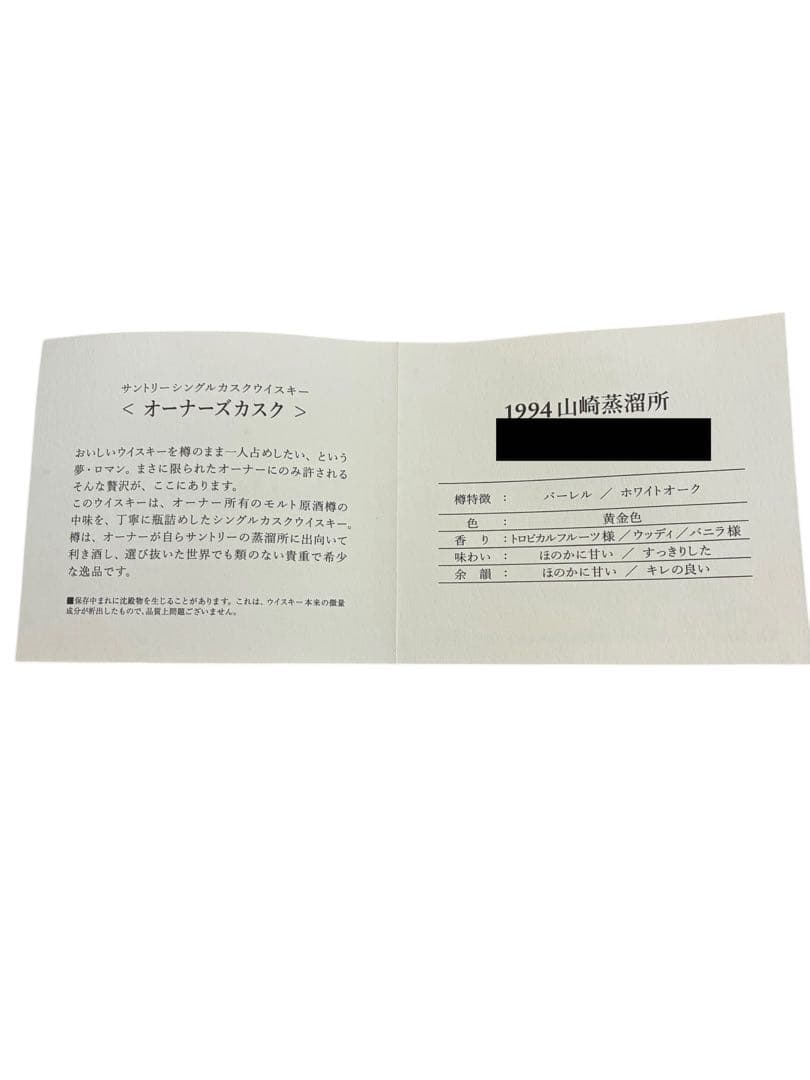 サントリーシングルカスクウイスキー
< オーナーズカスク >
おいしいウイスキーを樽のまま一人占めしたい、という
夢・ロマン。まさに限られたオーナーにのみ許される
そんな贅沢が、ここにあります。
このウイスキーは、オーナー所有のモルト原酒樽の
中味を、丁寧に瓶詰めしたシングルカスクウイスキー。
樽は、オーナーが自らサントリーの蒸溜所に出向いて
利き酒し、選び抜いた世界でも類のない貴重で希少
な逸品です。
■保存中まれに沈殿物を生じることがあります。これは、ウイスキー本来の微量
成分が析出したもので、品質上問題ございません。
1994 山崎蒸溜所
樽特徴 : バーレル / ホワイトオーク
色 : 黄金色
香り : トロピカルフルーツ様/ウッディ/バニラ様
味わい : ほのかに甘い / すっきりした
余韻 : ほのかに甘い / キレの良い